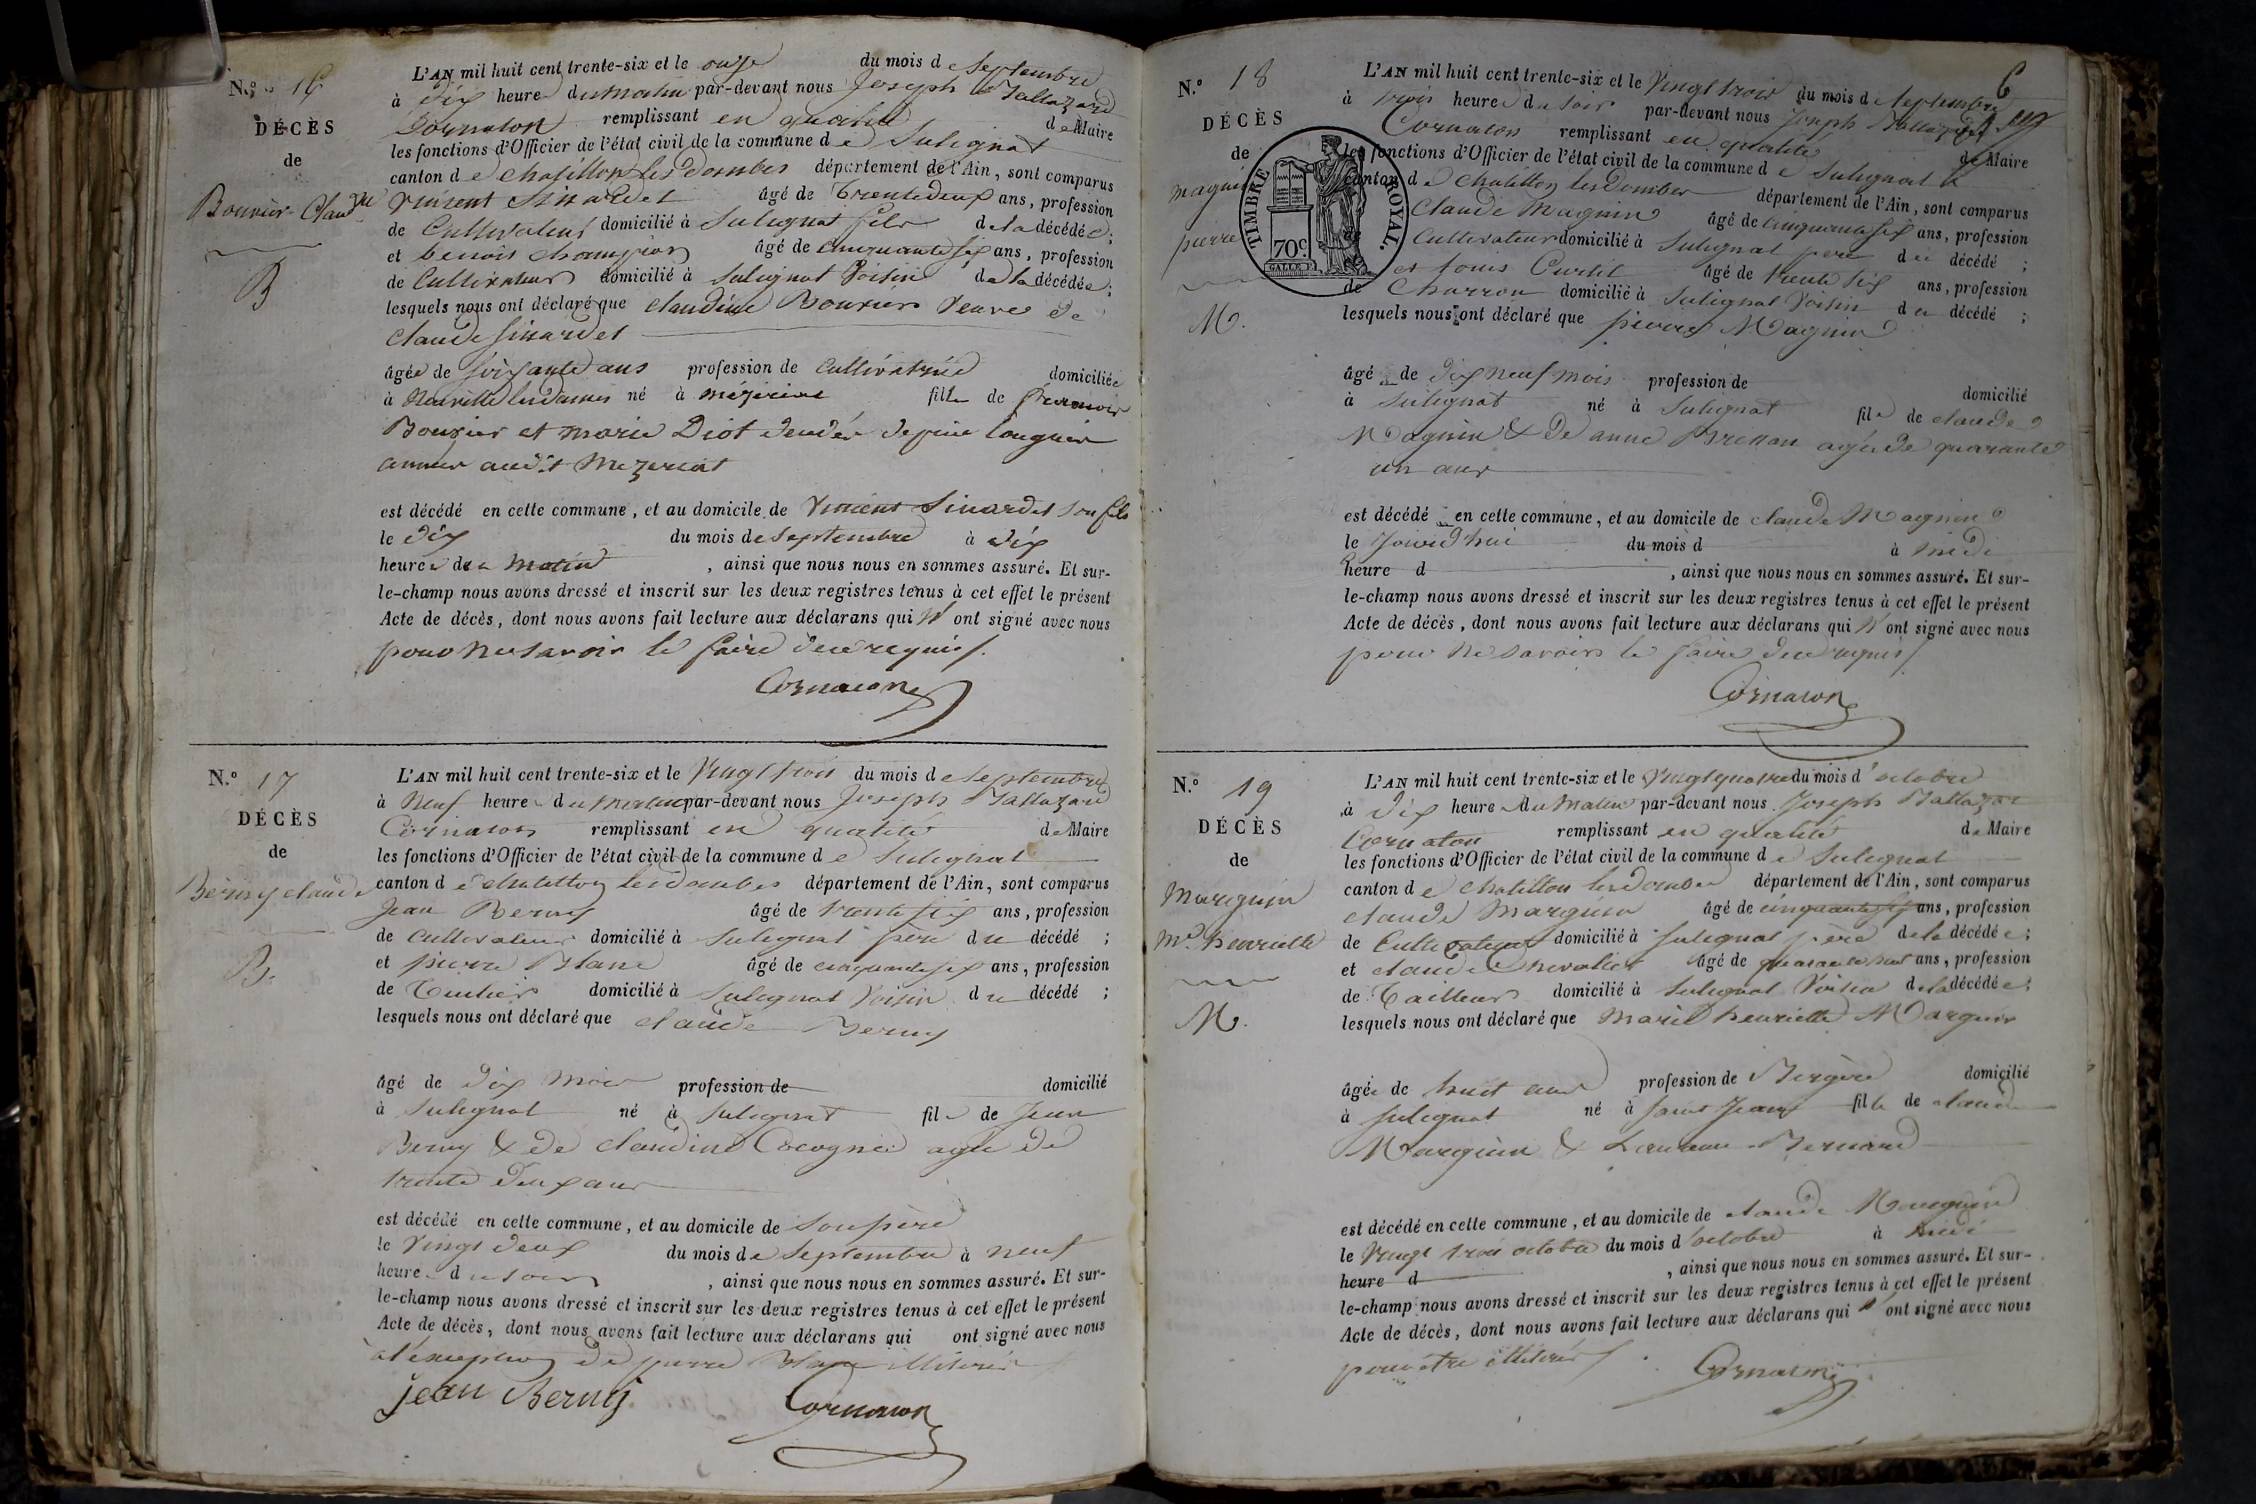 N.º 16
DÉCÈS
de
Bouvier Claud.ne
B
L'AN mil huit cent trente-six et le onze du mois de Septembre
à dix heures du matin par-devant nous Joseph Baltazard
Cornaton remplissant en qualité de Maire
les fonctions d'Officier de l'état civil de la commune de Sulignat
canton de Chatillon les dombes département de l'Ain, sont comparus
Vincent Sinardet âgé de trente deux ans, profession
de Cultivateur domicilié à Sulignat fils de la décédée;
et Benoit Champion âgé de cinquante six ans, profession
de Cultivateur domicilié à Sulignat Voisin de la décédée;
lesquels nous ont déclaré que Claudine Bouvier Veuve de
Claude Sinardet
âgée de soixante ans profession de Cultivatrice domiciliée
à Neuville les dames né à mézériat fille de
Bouvier et Marie Diot décédés depuis longues
années audit Mezeriat
est décédé en cette commune, et au domicile de Vincent Sinardet son fils
le dix du mois de Septembre à dix
heures du matin, ainsi que nous nous en sommes assuré. Et sur-
le-champ nous avons dressé et inscrit sur les deux registres tenus à cet effet le présent
Acte de décès, dont nous avons fait lecture aux déclarans qui N' ont signé avec nous
pour ne savoir le faire de ce requis.
Cornaton
N.º 17
DÉCÈS
de
Berny Claude
B.
L'AN mil huit cent trente-six et le Vingt trois du mois de Septembre
à Neuf heures du matin par-devant nous Joseph Baltazard
Cornaton remplissant en qualité de Maire
les fonctions d'Officier de l'état civil de la commune de Sulignat
canton de chatillon les dombes département de l'Ain, sont comparus
Jean Berny âgé de trente six ans, profession
de Cultivateur domicilié à Sulignat père du décédé;
et pierre Blanc âgé de cinquante six ans, profession
de domicilié à Sulignat Voisin du décédé;
lesquels nous ont déclaré que Claude Berny
âgé de dix mois profession de domicilié
à Sulignat né à Sulignat fils de Jean
Berny & de Claudine Cocogne agée de
trente deux ans
est décédé en cette commune, et au domicile de Son père
le Vingt deux du mois de Septembre à neuf
heures du soir, ainsi que nous nous en sommes assuré. Et sur-
le-champ nous avons dressé et inscrit sur les deux registres tenus à cet effet le présent
Acte de décès, dont nous avons fait lecture aux déclarans qui ont signé avec nous
à l'exception de pierre Blanc illitéré
Jean Berny Cornaton
6
N.º 18
DÉCÈS
de
Magnin
pierre
M.
TIMBRE ROYAL.
70c.
L'AN mil huit cent trente-six et le Vingt trois du mois de Septembre
à trois heures du soir par-devant nous Joseph Baltazard
Cornaton remplissant en qualité de Maire
les fonctions d'Officier de l'état civil de la commune de Sulignat
canton de Chatillon les dombes département de l'Ain, sont comparus
Claude Magnin âgé de cinquante six ans, profession
de Cultivateur domicilié à Sulignat père du décédé;
et Louis Curtil âgé de trente six ans, profession
de Charron domicilié à Sulignat Voisin du décédé;
lesquels nous ont déclaré que pierre Magnin
âgé de dix neuf mois profession de domicilié
à Sulignat né à Sulignat fils de claude
Magnin & de anne agée de quarante
un ans
est décédé en cette commune, et au domicile de claude Magnin
le Jourd'hui du mois d à midi
heure d, ainsi que nous nous en sommes assuré. Et sur-
le-champ nous avons dressé et inscrit sur les deux registres tenus à cet effet le présent
Acte de décès, dont nous avons fait lecture aux déclarans qui N' ont signé avec nous
pour ne savoir le faire de ce requis
Cornaton
N.º 19
DÉCÈS
de
Marguin
M.e henriette
M.
L'AN mil huit cent trente-six et le Vingt quatre du mois d'octobre
à dix heures du matin par-devant nous Joseph Baltazar
Cornaton remplissant en qualité de Maire
les fonctions d'Officier de l'état civil de la commune de Sulignat
canton de chatillon les dombes département de l'Ain, sont comparus
claude Marguin âgé de cinquante six ans, profession
de Cultivateur domicilié à Sulignat père de la décédée;
et claude Chevalier âgé de quarante huit ans, profession
de Tailleur domicilié à Sulignat Voisin de la décédée;
lesquels nous ont déclaré que Marie henriette Marguin
âgée de huit ans profession de Bergère domicilié
à Sulignat né à Saint Jean fille de claude
Marguin & Bernard
est décédé en cette commune, et au domicile de claude Marguin
le Vingt trois octobre du mois d'octobre à midi
heure d, ainsi que nous nous en sommes assuré. Et sur-
le-champ nous avons dressé et inscrit sur les deux registres tenus à cet effet le présent
Acte de décès, dont nous avons fait lecture aux déclarans qui n' ont signé avec nous
pour être illitérés.
Cornaton